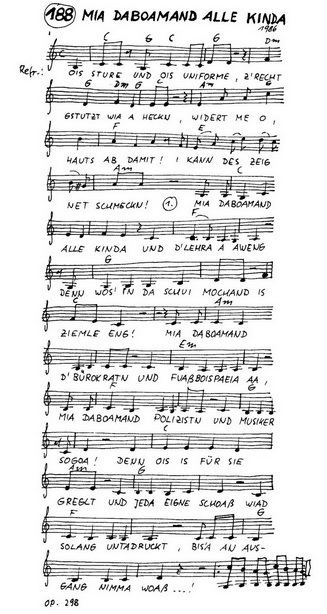 188 MIA DABOAMAND ALLE KINDA
1986
C G C G Dm
Refr.: OIS STURE UND OIS UNIFORME, Z'RECHT
G Dm G C Am
GSTUTZT WIA A HECKN, WIDERT ME O,
F E
HAUTS AB DAMIT! I KANN DES ZEIG
Am C
NET SCHMECKN! 1. MIA DABOAMAND
F
ALLE KINDA UND D'LEHRA A AWENG
G
DENN WOS' IN DA SCHUI MOCHAND IS
C Am
ZIEMLE ENG! MIA DABOAMAND
Em
D'BÜROKRATN UND FUAßBOISPAEIA AA,
F G
MIA DABOAMAND POLIZISTN UND MUSIKER
C
SOGOA! DENN OIS IS FÜR SIE
Am G
GREGLT UND JEDA EIGNE SCHOAß WIAD
F G
SOLANG UNTADRUCKT, BIS'A AN AUS-
GANG NIMMA WOAß...!
OP. 298